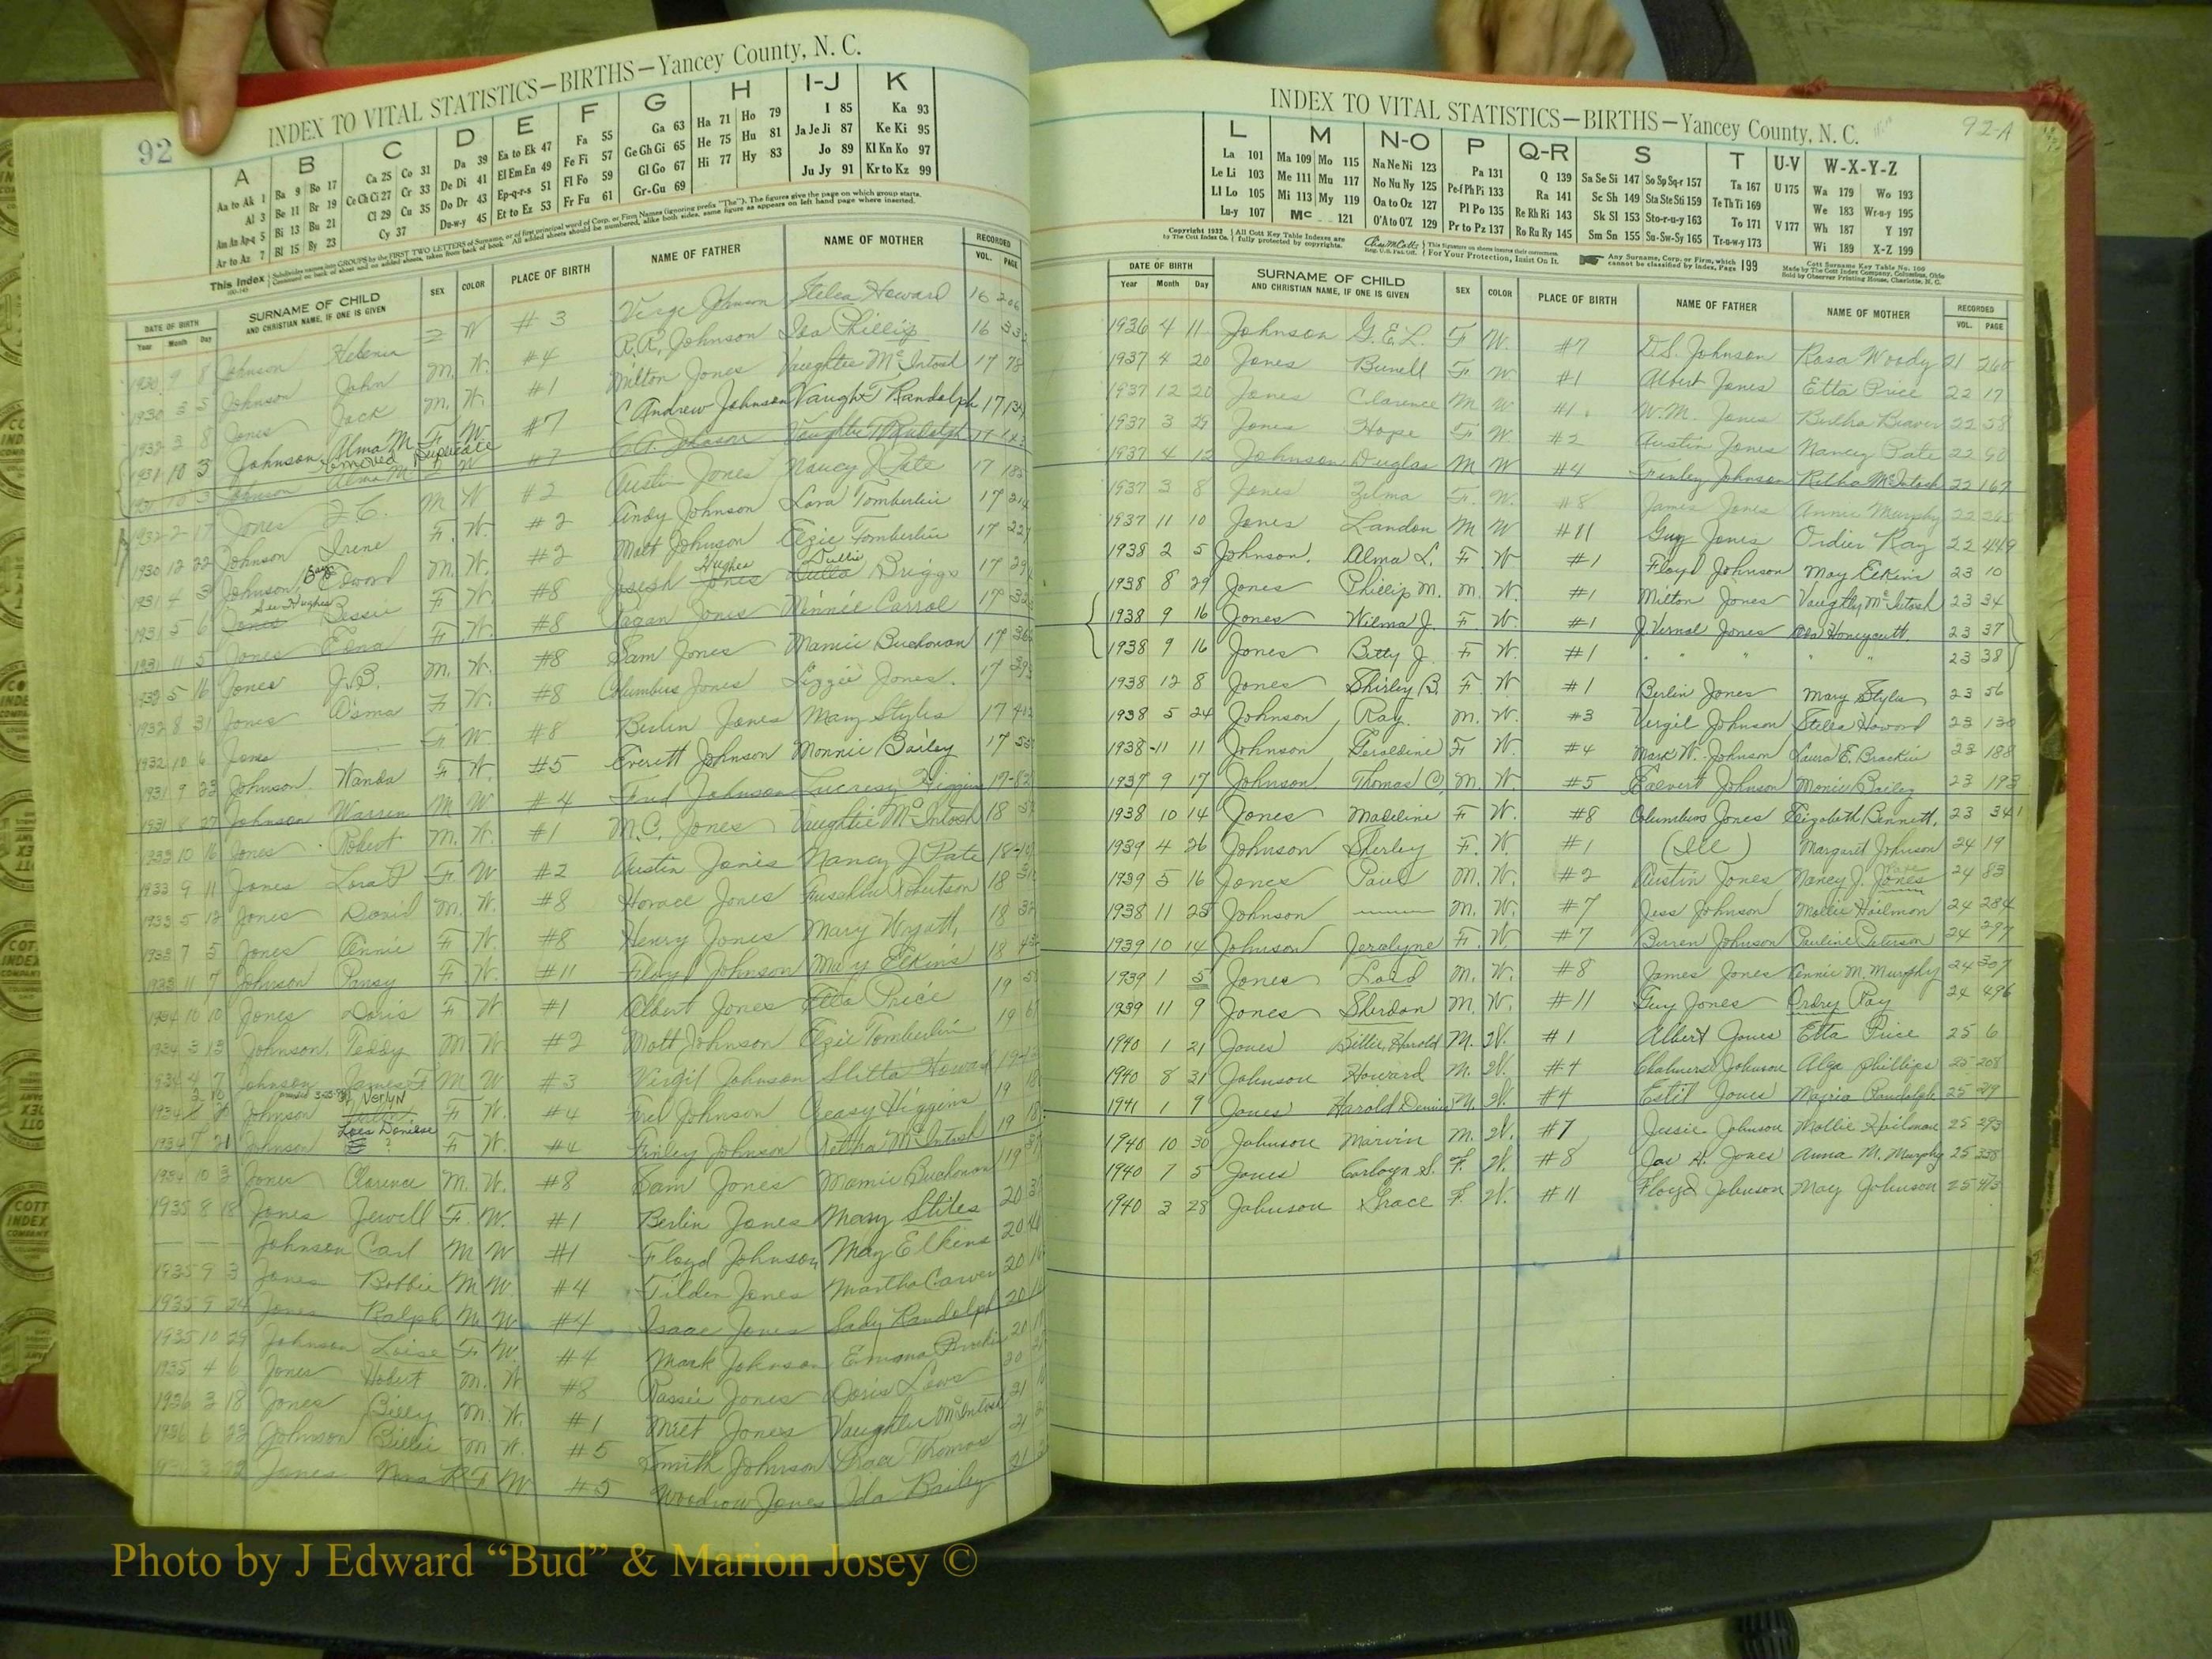 92
INDEX TO VITAL STATISTICS—BIRTHS—Yancey County, N. C.
A B C D E F G H I-J K
Aa to Ak 1 Ba 9 Bo 17 Ca 25 Co 31 Da 39 Ea to Ek 47 Fa 55 Ga 63 Ha 71 Ho 79 I 85 Ka 93
Al 3 Be 11 Br 19 Ce Ch Ci 27 Cr 33 De Di 41 El Em En 49 Fe Fi 57 Ge Gh Gi 65 He 75 Hu 81 Ja Je Ji 87 Ke Ki 95
Am An Ap-q 5 Bi 13 Bu 21 Cl 29 Cu 35 Do Dr 43 Ep-q-r-s 51 Fl Fo 59 Gl Go 67 Hi 77 Hy 83 Jo 89 Kl Kn Ko 97
Ar to Az 7 Bl 15 By 23 Cy 37 Du-w-y 45 Et to Ez 53 Fr Fu 61 Gr-Gu 69 Ju Jy 91 Kr to Kz 99
This Index
DATE OF BIRTH SURNAME OF CHILD SEX COLOR PLACE OF BIRTH NAME OF FATHER NAME OF MOTHER RECORDED
Year Month Day AND CHRISTIAN NAME, IF ONE IS GIVEN VOL. PAGE
1930 9 8 Johnson W #3 Johnson Stelea Howard 16
1930 3 5 Johnson John M. W. #4 R.A. Johnson Ida Phillips 16
1932 3 8 Jones Jack M. W. #1 Milton Jones Vaughtie McIntosh 17 78
1931 10 3 Johnson, Alma M F W #7 C Andrew Johnson Vaught T Randolph 17
Removed Duplicate
1931 10 3 Johnson Alma M F W #7 C.A. Johnson 17
1932 2 17 Jones M W #2 Austin Jones Nancy J Pate 17
1930 12 22 Johnson Irene F. W. #2 Andy Johnson Lora Tomberlin 17
1931 4 3 Johnson, Edword M. W. #2 Matt Johnson Elzie Tomberlin 17
See Hughes Hughes Dullie
1931 5 6 Jones Bessie F W. #8 Joseph Jones Dulla Briggs 17
1931 11 5 Jones Edna F. W. #8 Jones Minnie Carrol 17
1932 5 16 Jones J.B. M. W. #8 Sam Jones Mamie Buchanan 17
1932 8 31 Jones F W. #8 Columbus Jones Lizzie Jones. 17
1932 10 6 Jones F W #8 Berlin Jones Mary Styles 17
1931 9 23 Johnson. Wanda F. W. #5 Everett Johnson Monnie Bailey 17
1931 8 27 Johnson Warren M W #4 Fred Johnson Higgins 17
1933 10 16 Jones Robert M. W. #1 M.C. Jones Vaughtie McIntosh 18
1933 9 11 Jones Lora P F. W #2 Austin Jones Nancy J Pate 18
1933 5 12 Jones David M. W. #8 Horace Jones 18
1933 7 5 Jones Annie F W. #8 Henry Jones Mary Wyatt, 18
1933 11 7 Johnson Pansy F W. #11 Floyd Johnson May Elkins 18
1934 10 10 Jones Doris F W #1 Albert Jones Etta Price 19
1934 3 13 Johnson, Teddy M W #2 Matt Johnson Elzie Tomberlin 19
1934 4 7 Johnson James F M W #3 Virgil Johnson Howard 19
Verlyn
1934 Johnson F W. #4 Fred Johnson Creasy Higgins 19
Lois Doniese
1934 7 21 Johnson ? F W. #4 Finley Johnson Retha McIntosh 19
1934 10 3 Jones Clarence M. W. #8 Sam Jones Mamie Buchanan 19
1935 8 18 Jones Jewell F. W. #1 Berlin Jones Mary Stiles 20
Johnson Carl M W #1 Floyd Johnson May Elkins 20
1935 9 3 Jones Bobbie M W. #4 Tilden Jones Martha Carver 20
1935 9 24 Jones Ralph M W #4 Isaac Jones Sady Randolph 20
1935 10 29 Johnson Loise F W. #4 Mark Johnson Emma 20
1935 4 6 Jones Hobert M. W. #8 Jones Doris Laws 20
1936 3 18 Jones Billy M. W. #1 Milt Jones Vaughtie McIntosh 21
1936 6 22 Johnson Billie M W. #5 Smith Johnson Thomas 21
Jones Nina R F W. #5 Woodrow Jones Ida Bailey 21
92-A
INDEX TO VITAL STATISTICS—BIRTHS—Yancey County, N. C.
L M N-O P Q-R S T U-V W-X-Y-Z
La 101 Ma 109 Mo 115 Na Ne Ni 123 Pa 131 Q 139 Sa Se Si 147 So Sp Sq-r 157 Ta 167 U 175 Wa 179 Wo 193
Le Li 103 Me 111 Mu 117 No Nu Ny 125 Pe-f Ph Pi 133 Ra 141 Sc Sh 149 Sta Ste Sti 159 Te Th Ti 169 We 183 Wr-u-y 195
Ll Lo 105 Mi 113 My 119 Oa to Oz 127 Pl Po 135 Re Rh Ri 143 Sk Sl 153 Sto-r-u-y 163 To 171 V 177 Wh 187 Y 197
Lu-y 107 Mc 121 O'A to O'Z 129 Pr to Pz 137 Ro Ru Ry 145 Sm Sn 155 Su-Sw-Sy 165 Tr-u-w-y 173 Wi 189 X-Z 199
Copyright 1932 by The Cott Index Co. All Cott Key Table Indexes are fully protected by copyrights. This Signature on sheets insures their correctness. For Your Protection, Insist On It. Any Surname, Corp. or Firm, which cannot be classified by Index, Page 199 Cott Surname Key Table No. 100 Made by The Cott Index Company, Columbus, Ohio Sold by Observer Printing House, Charlotte, N. C.
DATE OF BIRTH SURNAME OF CHILD SEX COLOR PLACE OF BIRTH NAME OF FATHER NAME OF MOTHER RECORDED
Year Month Day AND CHRISTIAN NAME, IF ONE IS GIVEN VOL. PAGE
1936 4 11 Johnson G.E.L. F W. #7 D.S. Johnson Rosa Woody 21 260
1937 4 20 Jones Burell F W #1 Albert Jones Etta Price 22 17
1937 12 20 Jones Clarence M W #1. W.M. Jones Bertha Beaver 22 58
1937 3 25 Jones Hope F W. #2 Austin Jones Nancy Pate 22 90
1937 4 12 Johnson Duglas M W #4 Finley Johnson Retha McIntosh 22 167
1937 3 8 Jones Zelma F. W. #8 James Jones Annie Murphy 22 265
1937 11 10 Jones Landon M W #11 Guy Jones Ordier Ray 22 449
1938 2 5 Johnson. Alma L. F. W. #1 Floyd Johnson May Elkins 23 10
1938 8 29 Jones Phillip M. M. W. #1 Milton Jones Vaughty McIntosh 23 34
1938 9 16 Jones Wilma J. F W. #1 J. Vernal Jones Honeycutt. 23 37
1938 9 16 Jones Betty J. F W. #1 " " " " 23 38
1938 12 8 Jones Shirley B. F. W #1 Berlin Jones Mary Styles 23 56
1938 5 24 Johnson, Ray. M. W. #3 Vergil Johnson Stella Howard 23 130
1938 11 11 Johnson, Geraldine F W. #4 Mark W. Johnson Laura E. Brackin 23 188
1937 9 17 Johnson, Thomas C, M. W. #5 Johnson Monie Bailey 23 193
1938 10 14 Jones Madeline F W. #8 Columbus Jones Elizabeth Bennett, 23 341
1939 4 26 Johnson Sherley F. W. #1 (Ill) Margaret Johnson 24 19
Pate
1939 5 16 Jones Paul M. W. #2 Austin Jones Nancy J. Jones 24 83
1938 11 25 Johnson M. W. #7 Jess Johnson Mollie Hoilmon 24 284
1939 10 14 Johnson Jeralyne F. W #7 Johnson Pauline Peterson 24 297
1939 1 5 Jones M. W. #8 James Jones Annie M. Murphy 24 307
1939 11 9 Jones Sherdon M. W. #11 Guy Jones Ordry Ray 24 496
1940 1 21 Jones Billie Harold M. W. #1 Albert Jones Etta Price 25 6
1940 8 31 Johnson Howard M. W. #4 Chalmers Johnson Alga Phillips 25 208
1941 1 9 Jones Harold Dennis M. W. #4 Estil Jones Majria Randolph 25 219
1940 10 30 Johnson Marvin M. W. #7 Jessie Johnson Mollie Hoilman 25 293
1940 7 5 Jones Carloyn S. F. W. #8 Jas H. Jones Anna M. Murphy 25 338
1940 3 28 Johnson Grace F. W. #11 Floyd Johnson May Johnson 25 473
Photo by J Edward “Bud” & Marion Josey ©